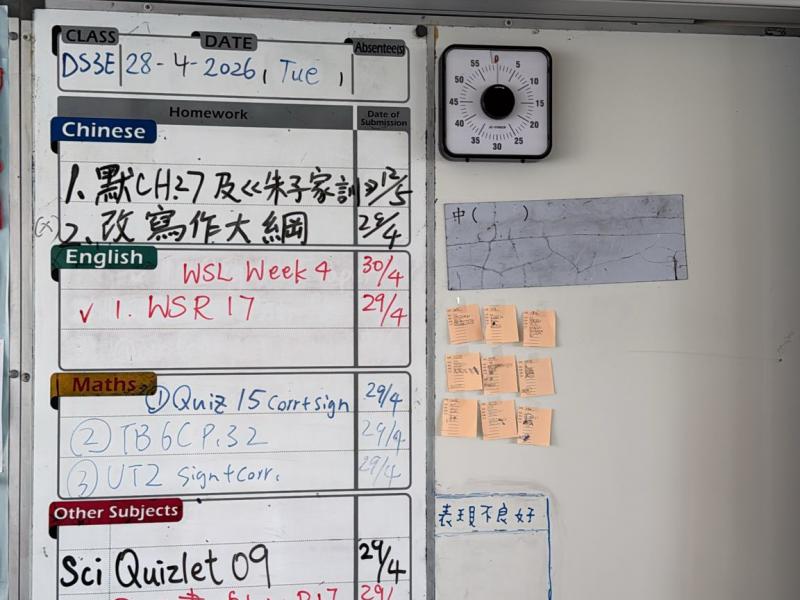 CLASS DATE Absentee(s)
DS3E 28-4-2026, Tue,
Homework Date of Submission
Chinese
1. 默CH.27 及《朱子家訓》 12/5
2. 改寫作大綱 29/4
English
WSL Week 4 30/4
✓ 1. WSR 17 29/4
Maths
① Quiz 15 Corr+sign 29/4
② TB 6C P.32 29/4
③ UT2 sign+corr. 29/4
Other Subjects
Sci Quizlet 09 29/4
P17 29/
0 5 10 15 20 25 30 35 40 45 50 55
中( )
表現不良好